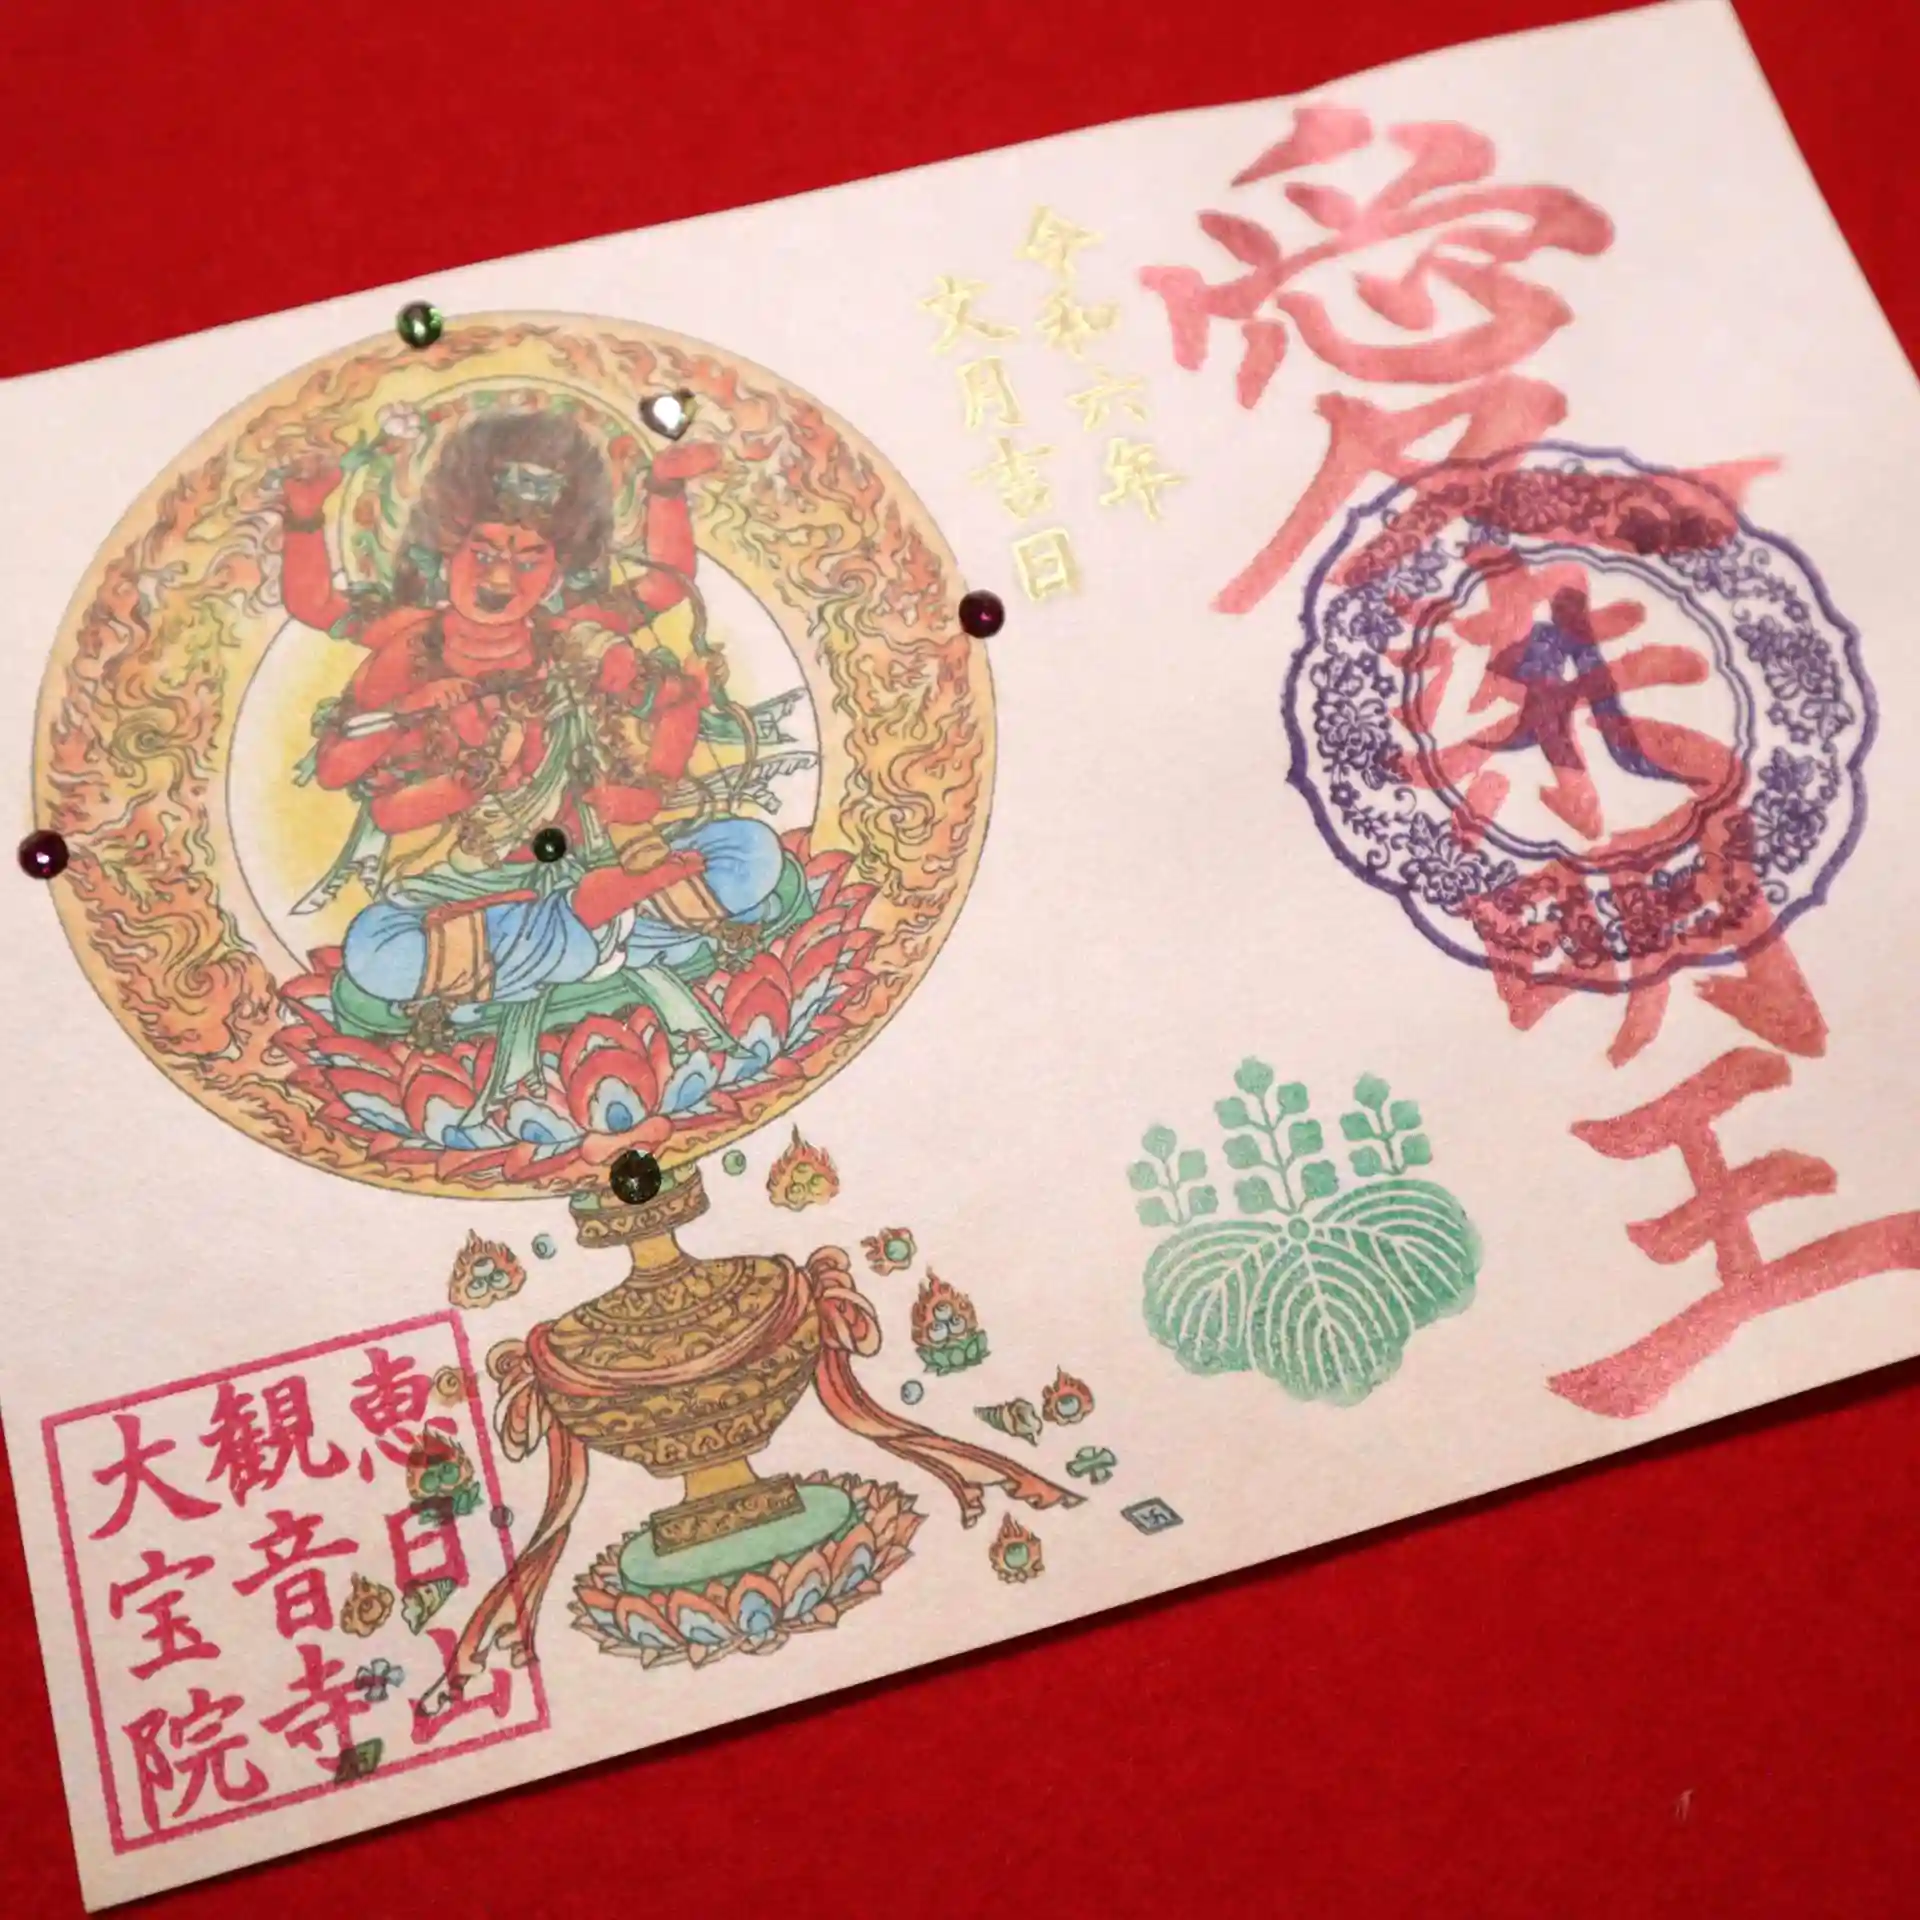 愛染明王
令和六年
文月吉日
恵日山
観音寺
大宝院